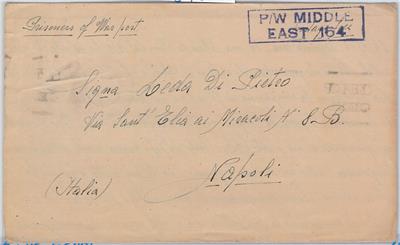 Prisoners of War post
P/W MIDDLE
EAST 164
Sigma Leda Di Pietro
Via Sant' Elia ai Miracoli N° 8-B.
Napoli
(Italia)